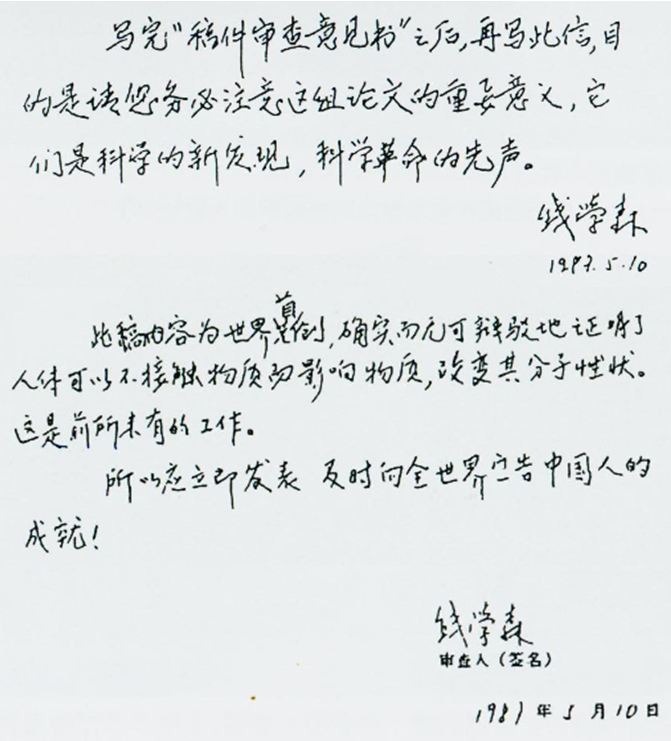 写完“稿件审查意见书”之后,再写此信,目
的是请您务必注意这组论文的重要意义,它
们是科学的新发现,科学革命的先声。
钱学森
1987.5.10
此稿内容为世界首创,确实而无可辩驳地证明了
人体可以不接触物质而影响物质,改变其分子性状。
这是前所未有的工作。
所以应立即发表 及时向全世界宣告中国人的
成就!
钱学森
审查人(签名)
1987年5月10日